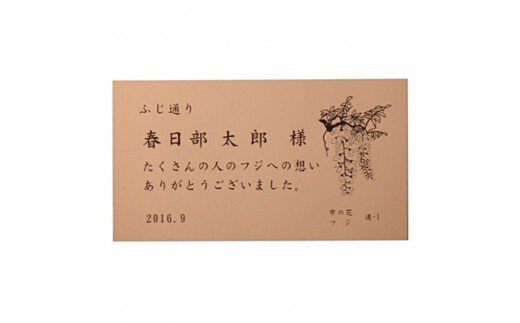 ふじ通り
春日部 太郎 様
たくさんの人のフジへの想い
ありがとうございました。
2016.9
市の花
フジ
通-1